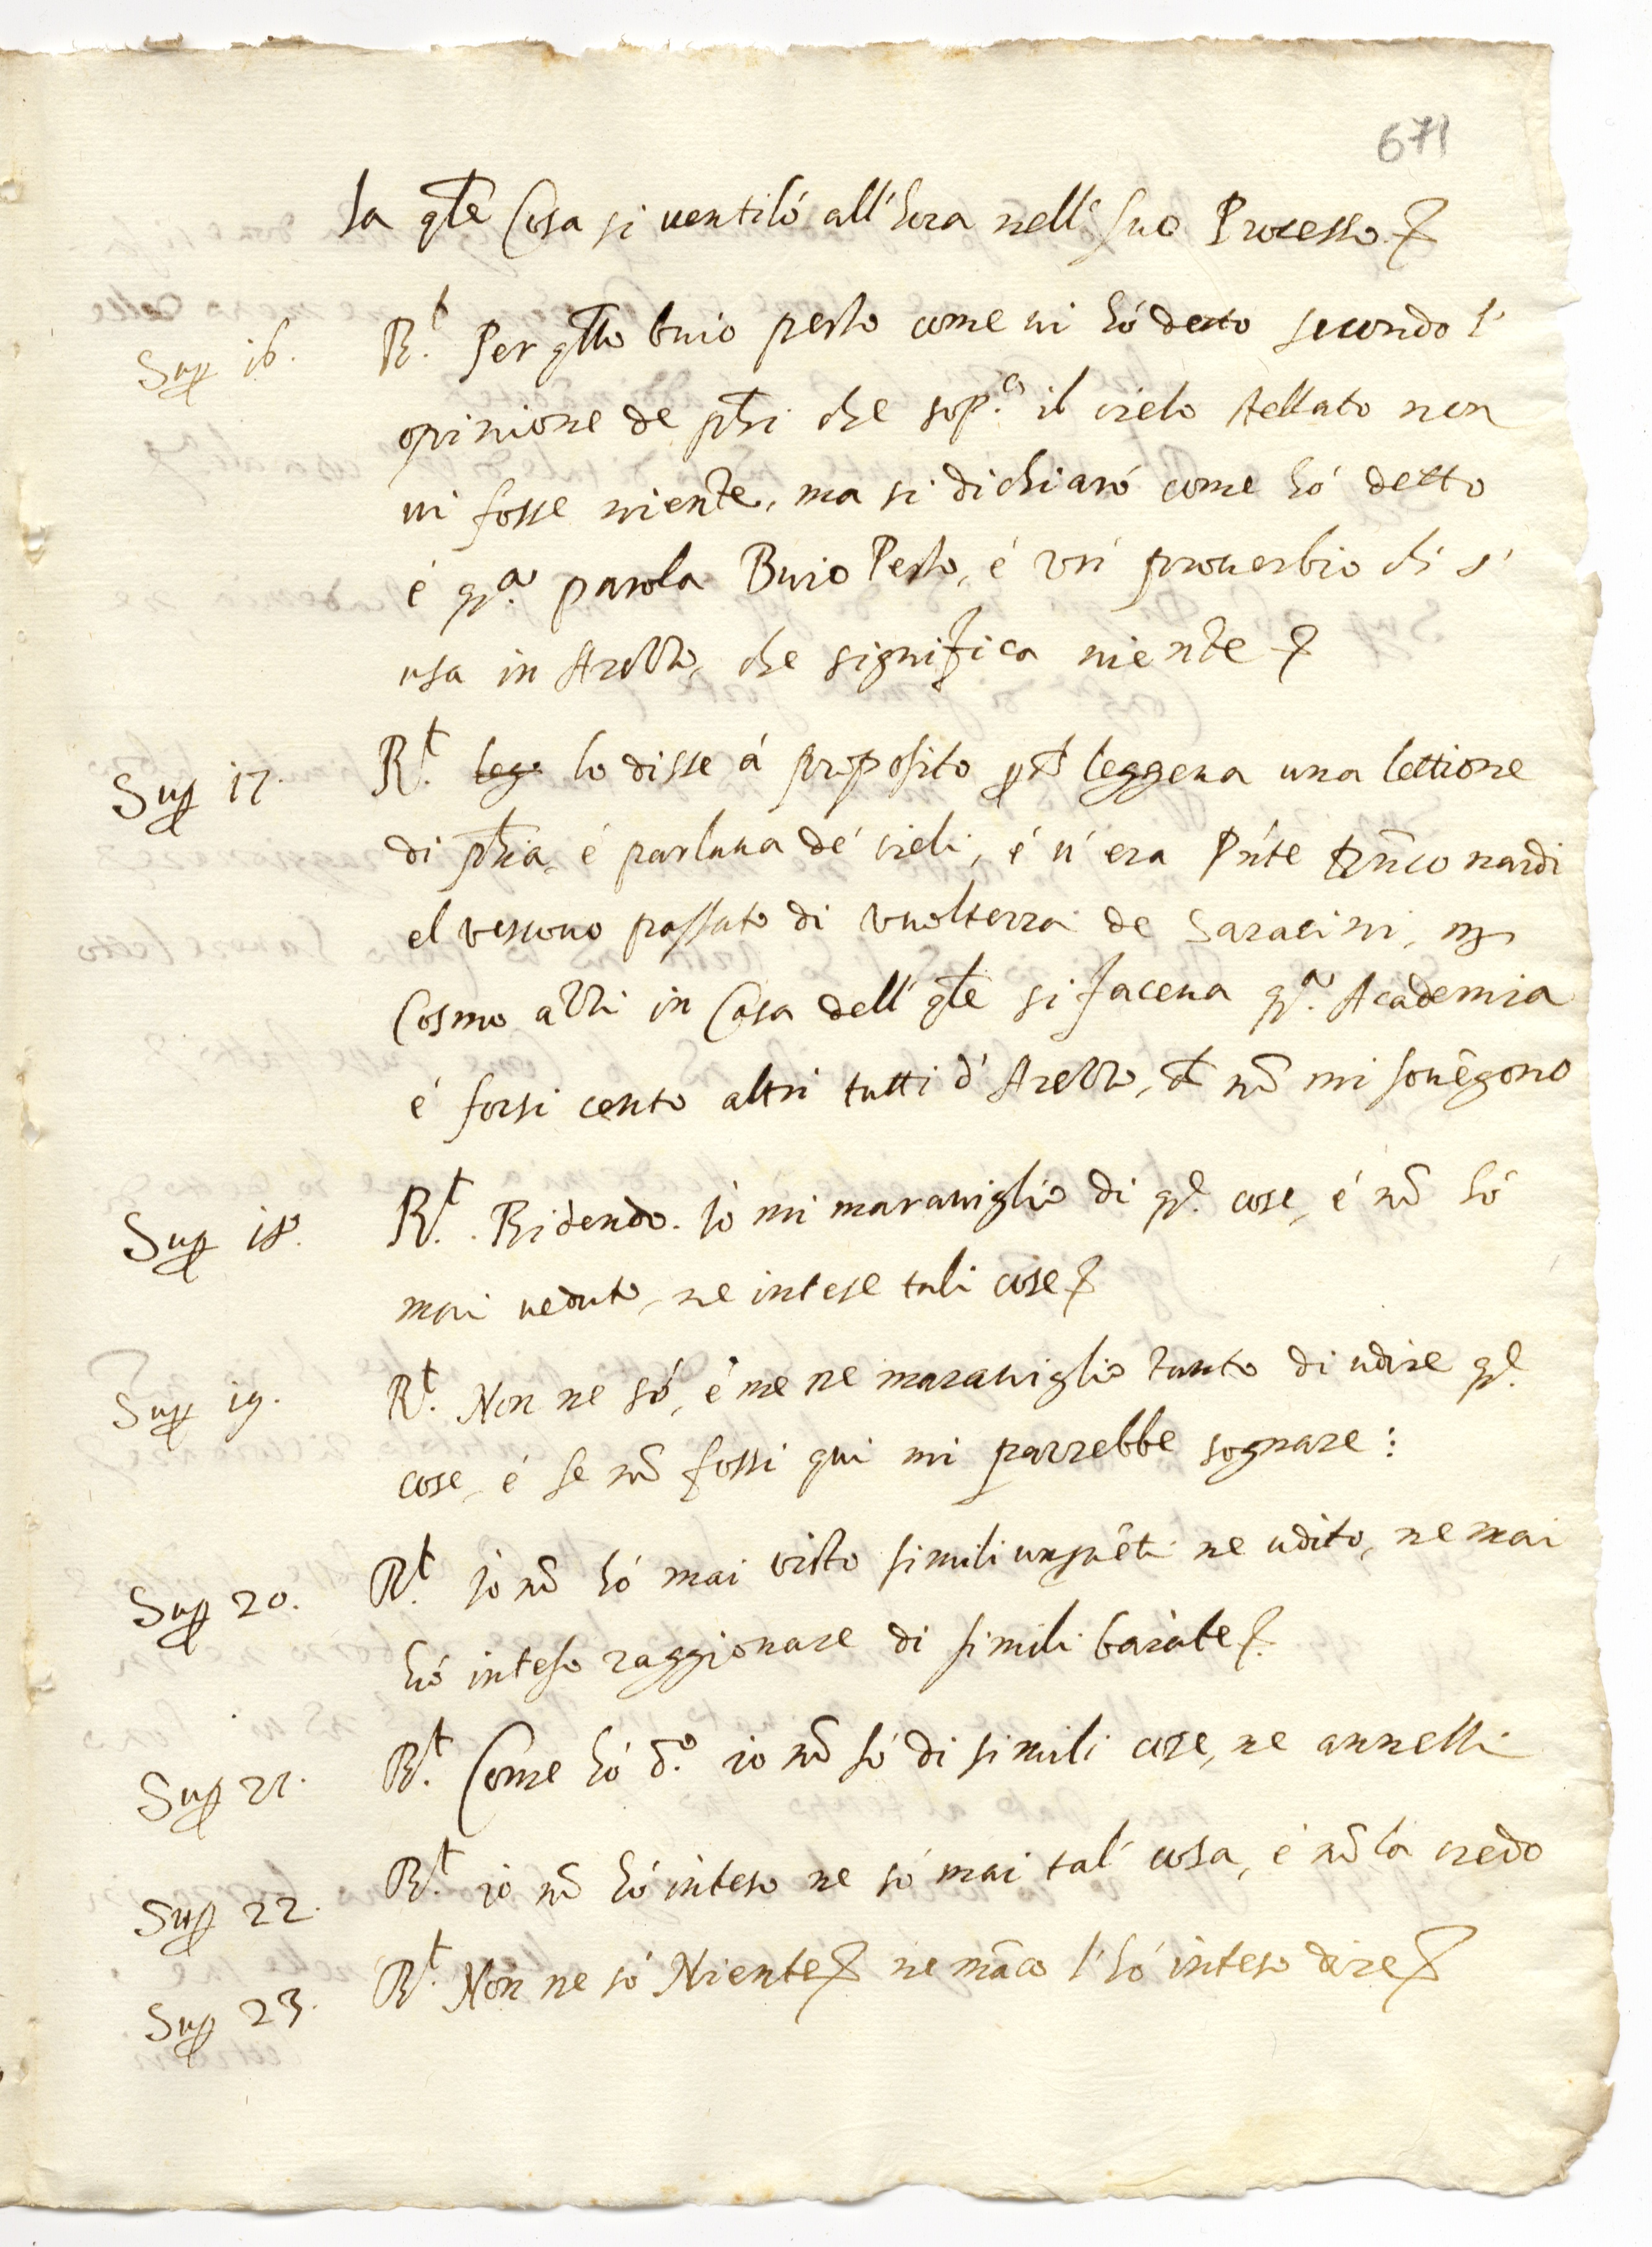 671
la qłe Cosa si uentiló all'hora nell' suo Processo
Sup 16. R.t Per qllo buio pesto come ui hó detto secondo l'
opinione de phi che sop.a il cielo stellato non
ui fosse niente, ma si dichiaró come hó detto
é q.a parola Buio Pesto, é un' prouerbio ch' s'
usa in Arezzo, che significa niente
Sup 17. R.t lego lo disse á proposito p ch leggeua una lettione
di phia, é parlaua dé cieli, é u' era Pn'te frnco nardi
el vescouo passato di vuolterra de Saracini, m
Cosmo azzi in Casa dell' qłe si faceua q.a Academia
é forsi cento altri tutti d' Arezzo, ch nõ mi souẽgono
Sup 18. R.t Ridendo. Io mi marauiglio di q.e cose, é nõ hó
mai ueduto, ne intese tali cose
Sup 19. R.t Non ne só, é me ne marauiglio tanto di udire q.e
cose, é se nõ fossi qui mi parrebbe sognare:
Sup 20. R.t Io nõ hó mai visto simili unguẽti ne udito, ne mai
hó inteso raggionare di simili baiate
Sup 21. R.t Come hó d.o io nõ só di simili cose, ne annelli
Sup 22. R.t io nõ hó inteso ne só mai tal' cosa, é nõ la credo
Sup 23. R.t Non ne só Niente ne mãco l'hó inteso dire